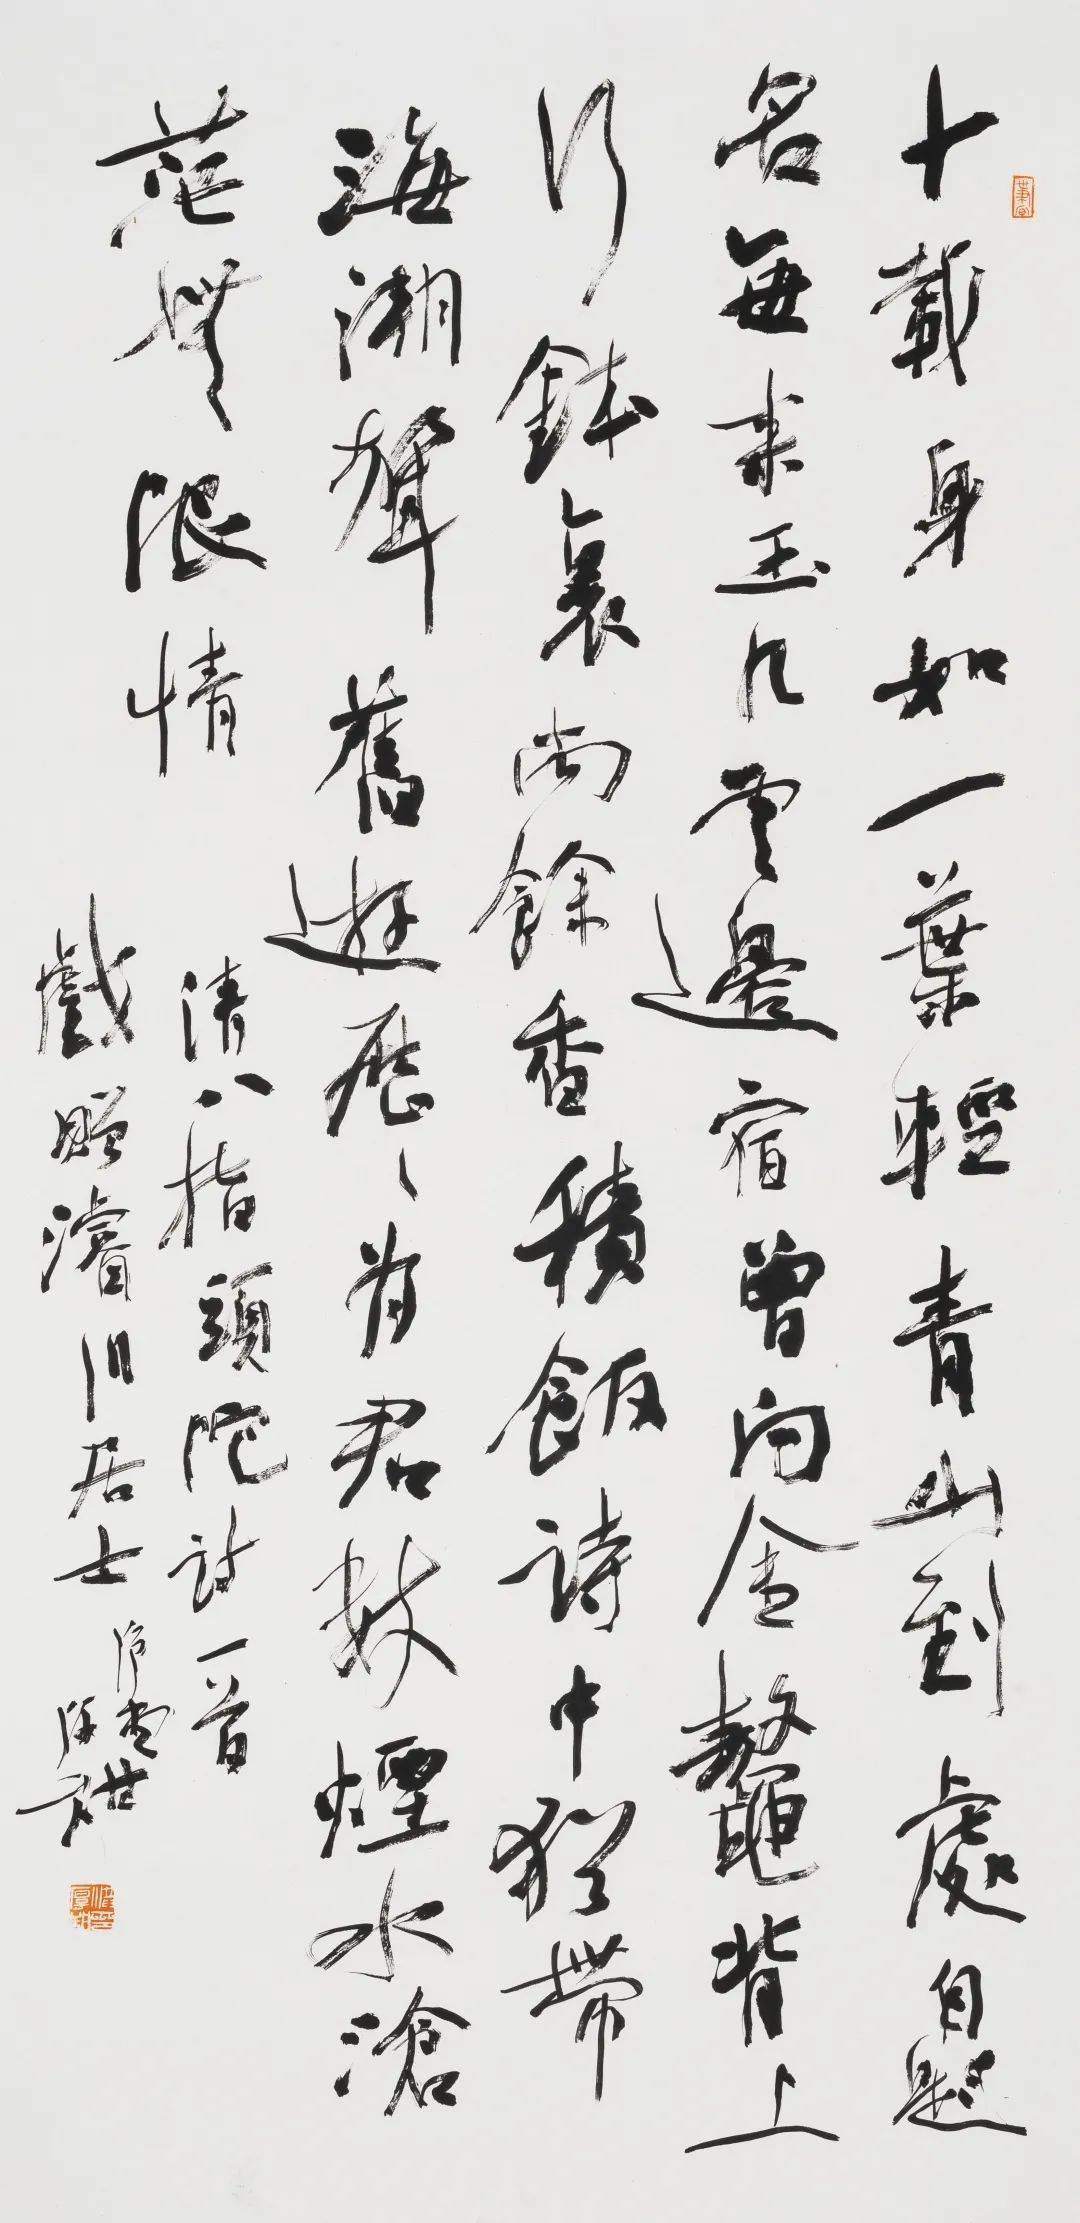 十載身如一葉輕青山到處自題
名每來玉几雲邊宿曾向金鰲背上
行鉢裏尚餘香積飯詩中猶帶
海潮聲舊遊歷〻為君數煙水滄
茫無限情
清八指頭陀詩一首
戲贈濬川居士